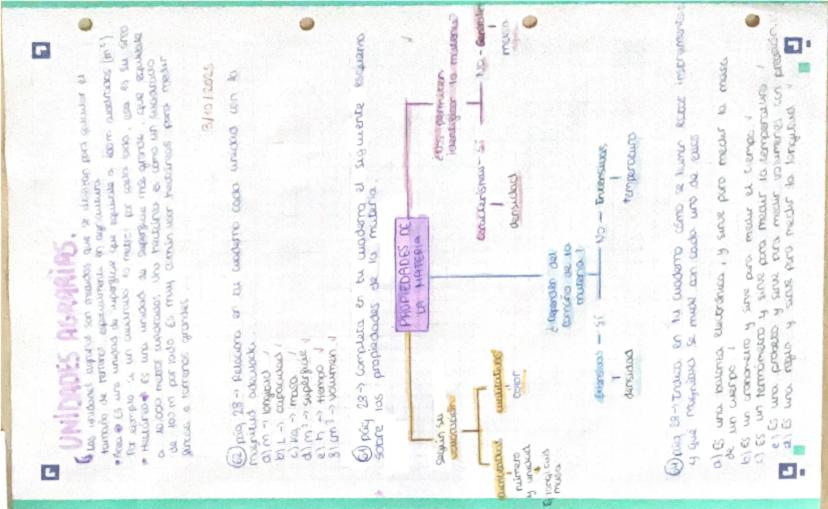 6 UNIDADES AGRARIAS.
Las unidades agrarias son medidas que se utilizan para calcular el
tamaño de terrenos, especialmente en agricultura
Área es una unidad de superficie que equivale a 100m cuadrados (m²)
Por ejemplo si un cuadrado es metro por cada lado, esa es su
Hectárea es una unidad de superficie más grande, que equivale
a 10.000 metros cuadrados. Una hectárea es como un cuadrado
de 100 m por lado. Es muy común usar hectáreas para medir
a terrenos grandes
3/10/2025
62 pág 28 → Relaciona en tu cuaderno cada unidad con la
magnitud adecuada.
a) m → longitud √
b) L → capacidad √
c) kg → masa √
d) m² → superficie √
e) h → tiempo √
g) cm³ → volumen √
63 pág 28 → Completa en tu cuaderno el siguiente esquema
sobre las propiedades de la materia.
PROPIEDADES DE
LA MATERIA
según su
valoración
cuantitativas
número
y unidad
longitud
masa
cualitativas
color
¿Dependen del
tamaño de la
materia?
Sí
densidad
NO — Intensivas
temperatura
¿Nos permiten
identificar la materia?
características — Sí
densidad
NO — Generales
masa
64 pág 28 → Indica en tu cuaderno cómo se llaman estos instrumentos
y que magnitud se mide con cada uno de ellos
a) Es una balanza electrónica, y sirve para medir la masa
de un cuerpo √
b) Es un cronómetro y sirve para medir el tiempo √
c) Es un termómetro y sirve para medir la temperatura √
e) Es una probeta y sirve para medir volúmenes con precisión √
d) Es una regla y sirve para medir la longitud √